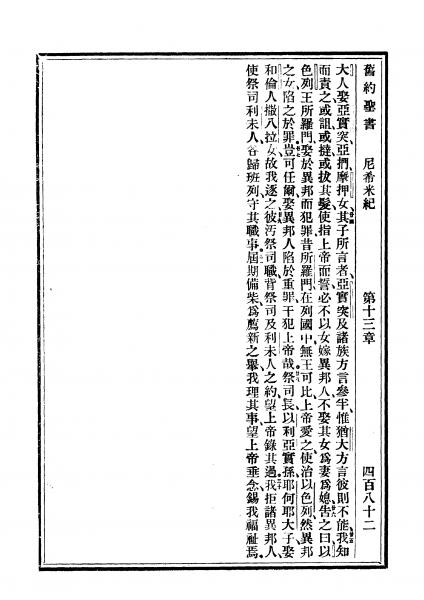 舊約聖書 尼希米紀 第十三章 四百八十二
大人娶亞實突亞捫摩押女其子所言者亞實突及諸族方言參半惟猶大方言彼則不能我知
而責之或詛或撻或拔其髮使指上帝而誓必不以女嫁異邦人不娶其女爲妻爲媳告之曰以
色列王所羅門娶於異邦而犯罪昔所羅門在列國中無王可比上帝愛之使治以色列然異邦
之女陷之於罪豈可任爾娶異邦人陷於重罪干犯上帝哉祭司長以利亞實孫耶何耶大子娶
和倫人撒八拉女故我逐之彼汚祭司職背祭司及利未人之約望上帝錄其過我拒諸異邦人
使祭司利未人各歸班列守其職事屆期備柴爲薦新之舉我理其事望上帝垂念錫我福祉焉